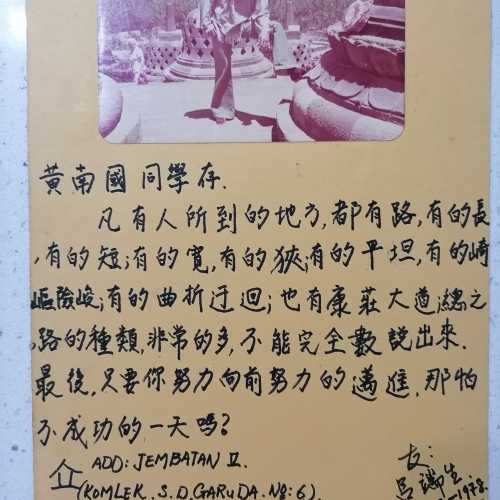 黄南國同學存.
凡有人所到的地方,都有路,有的長
,有的短;有的寬,有的狹;有的平坦,有的崎
嶇險峻;有的曲折迂迴;也有康莊大道,總之
,路的種類,非常的多,不能完全數說出來.
最後,只要你努力向前努力的邁進,那怕
不成功的一天嗎?
ADD: JEMBATAN II.
(KOMLEK. S.D. GARUDA. No: 6).
友:
瑞生
1978.